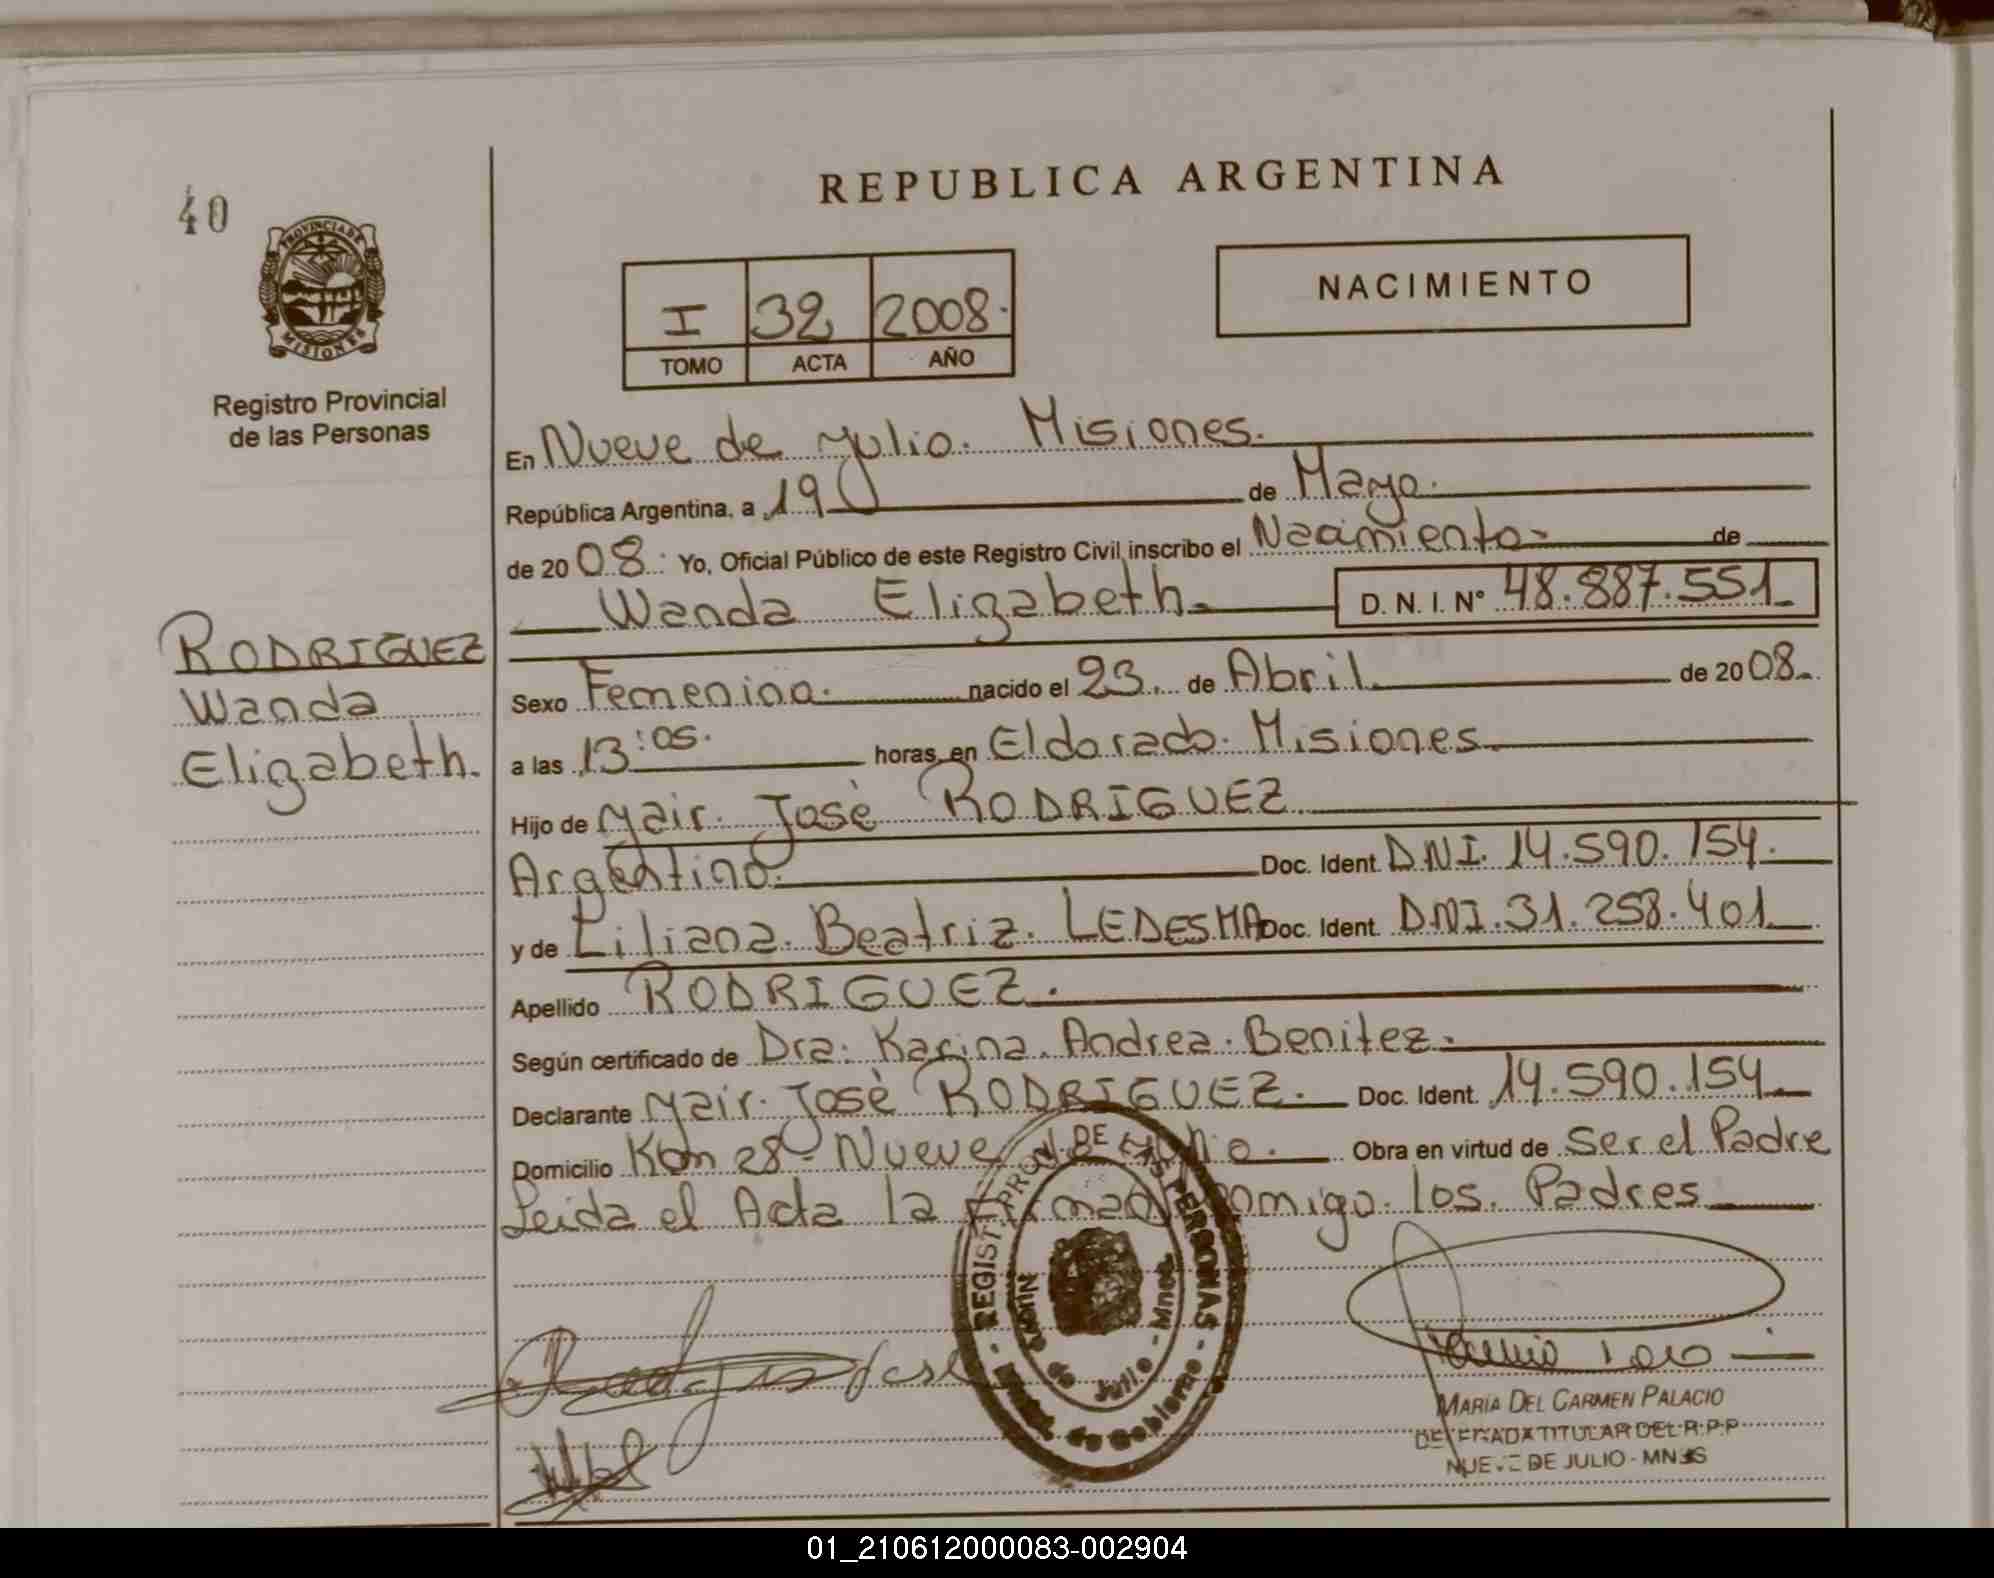 40
PROVINCIA DE
MISIONES
Registro Provincial
de las Personas
REPUBLICA ARGENTINA
I 32 2008.
TOMO ACTA AÑO
NACIMIENTO
En Nueve de Julio. Misiones.
República Argentina, a 19 de Mayo.
de 20 08. Yo, Oficial Público de este Registro Civil, inscribo el Nacimiento de
Wanda Elizabeth. D. N. I. Nº 48.887.551
RODRIGUEZ
Wanda
Elizabeth.
Sexo Femenino. nacido el 23. de Abril de 20 08.
a las 13:05. horas, en Eldorado. Misiones.
Hijo de Yair. José RODRIGUEZ
Argentino. Doc. Ident. DNI. 14.590.154.
y de Liliana. Beatriz. LEDESMA Doc. Ident. DNI.31.258.401
Apellido RODRIGUEZ.
Según certificado de Dra. Karina. Andrea. Benitez.
Declarante Yair. José RODRIGUEZ. Doc. Ident. 14.590.154
Domicilio Km 28- Nueve Julio. Obra en virtud de Ser el Padre
Leida el Acta la Firman Conmigo. los. Padres
REGIST. PROV. DE LAS PERSONAS
Nueve de Julio - Mnes
de Gobierno
MARÍA DEL CARMEN PALACIO
DELEGADA TITULAR DEL R.P.P
NUEVE DE JULIO - MNES
01_210612000083-002904